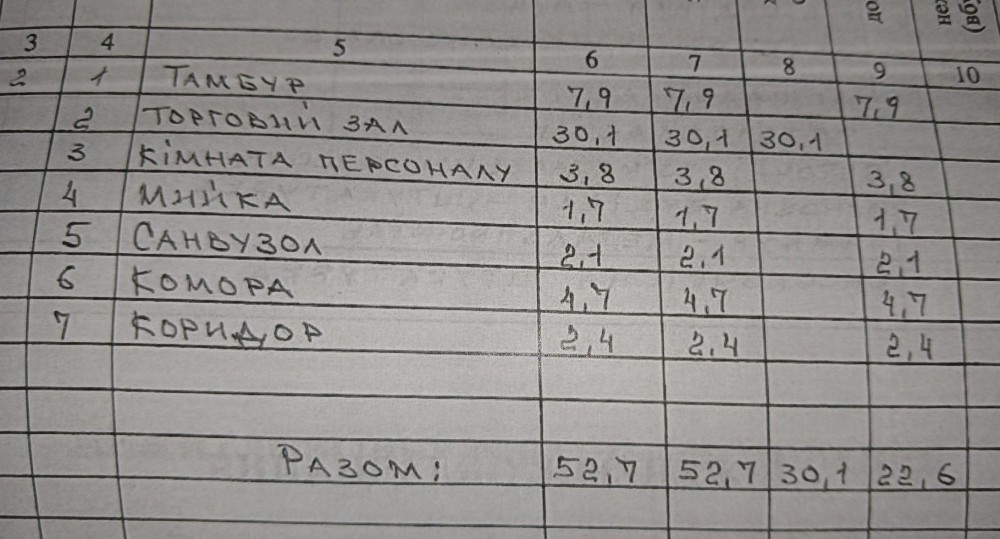 3 4 5 6 7 8 9 10
2 1 ТАМБУР 7,9 7,9 7,9
2 ТОРГОВИЙ ЗАЛ 30,1 30,1 30,1
3 КІМНАТА ПЕРСОНАЛУ 3,8 3,8 3,8
4 МИЙКА 1,7 1,7 1,7
5 САНВУЗОЛ 2,1 2,1 2,1
6 КОМОРА 4,7 4,7 4,7
7 КОРИДОР 2,4 2,4 2,4
РАЗОМ: 52,7 52,7 30,1 22,6